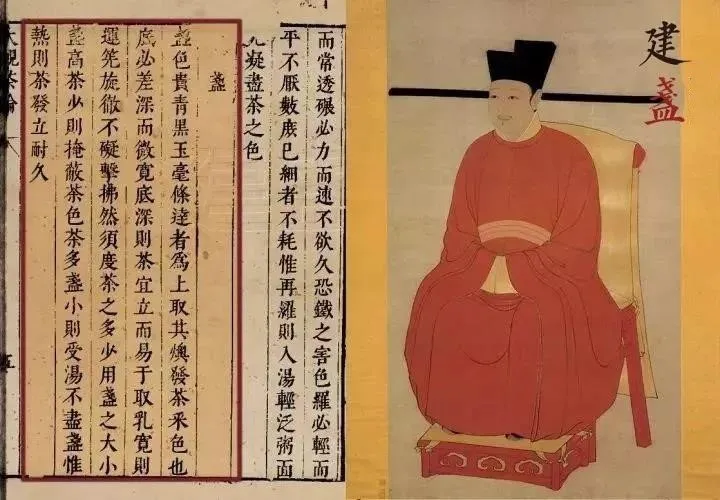 而常透碾必力而速不欲久恐鐵之害色羅必輕而
平不厭數庶已細者不耗惟再羅則入湯輕泛粥面
凝盡茶之色
盞
盞色貴青黑玉毫條達者爲上取其燠發茶采色也
底必差深而微寬底深則茶宜立而易于取乳寬則
運筅旋徹不礙擊拂然須度茶之多少用盞之大小
盞高茶少則掩蔽茶色茶多盞小則受湯不盡盞惟
熱則茶發立耐久
大觀茶論
五
建盞